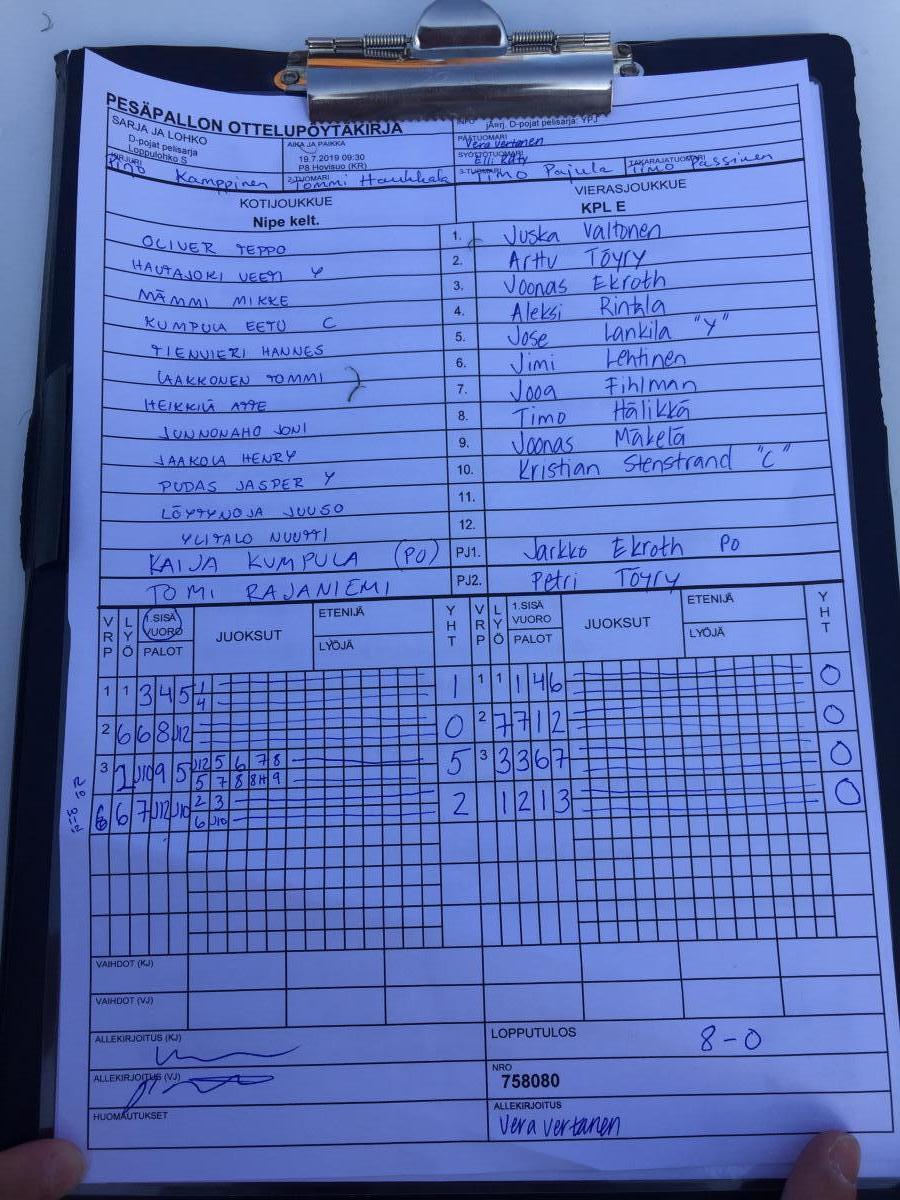 PESÄPALLON OTTELUPÖYTÄKIRJA
SARJA JA LOHKO
D-pojat pelisarja
Loppulohko S
AIKA JA PAIKKA
19.7.2019 09:30
P8 Hovisuo (KR)
INFO
jÄrj. D-pojat pelisarja: YPJ
PÄÄTUOMARI
Vera Vertanen
SYÖTTÖTUOMARI
Kamppinen
2-TUOMARI
Tommi Haukkala
3-TUOMARI
Timo Pajula
TAKARAJATUOMARI
Timo Passinen
KOTIJOUKKUE
Nipe kelt.
VIERASJOUKKUE
KPL E
OLIVER TEPPO 1. Juska Valtonen
HAUTAJOKI VEETI Y 2. Arttu Töyry
MÄMMI MIKKE 3. Joonas Ekroth
KUMPULA EETU C 4. Aleksi Rintala
TIENVIERI HANNES 5. Jose Lankila "Y"
LAAKKONEN TOMMI 6. Jimi Lehtinen
HEIKKILÄ ATTE 7. Jooa Fihlman
JUNNONAHO JONI 8. Timo Hälikkä
JAAKOLA HENRY 9. Joonas Mäkelä
PUDAS JASPER Y 10. Kristian Stenstrand "C"
LÖYTYNOJA JUUSO 11.
YLITALO NUUTTI 12.
KAIJA KUMPULA (PO) PJ1. Jarkko Ekroth PO
TOMI RAJANIEMI PJ2. Petri Töyry
VRP LYÖ 1.SISÄ VUORO PALOT JUOKSUT ETENIJÄ LYÖJÄ YHT VRP LYÖ 1.SISÄ VUORO PALOT JUOKSUT ETENIJÄ LYÖJÄ YHT
1 1 3 4 5 1 1 1 1 1 4 6 0
4
2 6 6 8 J12 0 2 7 7 1 2 0
3 J10 9 5 J12 5 6 7 8 5 3 3 3 6 7 0
5 7 8 8 9
6 7 J12 J10 2 3 2 1 2 1 3 0
6 J10
VAIHDOT (KJ)
VAIHDOT (VJ)
ALLEKIRJOITUS (KJ)
LOPPUTULOS 8-0
ALLEKIRJOITUS (VJ)
NRO
758080
HUOMAUTUKSET
ALLEKIRJOITUS
Vera Vertanen